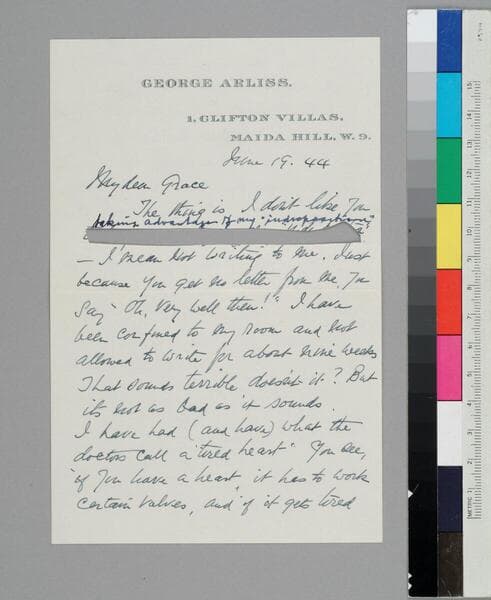 GEORGE ARLISS.
1, CLIFTON VILLAS,
MAIDA HILL, W. 9.
June 19. 44
My dear Grace
The thing is, I don't like you
taking advantage of my "indisposition"
– I mean not writing to me. Just
because you get no letter from me, you
say "Oh, very well then!" I have
been confined to my room and not
allowed to write for about nine weeks
That sounds terrible doesn't it? But
its not as bad as it sounds.
I have had (and have) what the
doctors call a "tired heart" You see,
if you have a heart, it has to work
certain valves, and if it gets tired